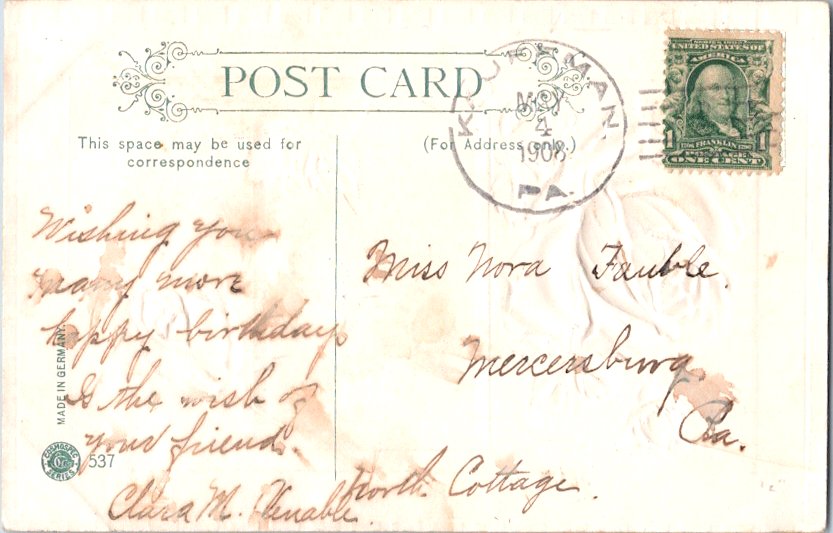 POST CARD
This space may be used for
correspondence
(For Address only.)
KAUFFMAN.
MAY
4
1908
PA.
UNITED STATES OF
AMERICA
1 FRANKLIN 1
POSTAGE
ONE CENT
Wishing you
many more
happy birthdays
Is the wish of
your friend.
Clara M. Venable.
Miss Nora Fauble.
Mercersburg
Pa.
North Cottage.
MADE IN GERMANY.
COSMOSPEC
SERIES
537